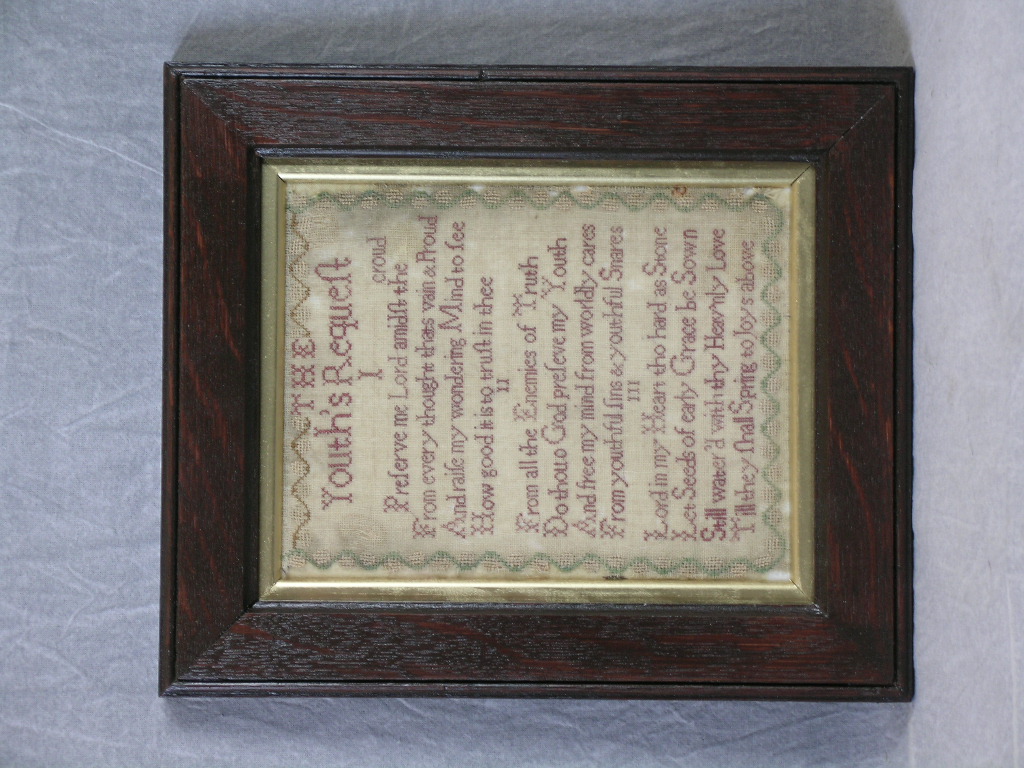 THE
Youth's Requeſt
I
croud
Preſerve me Lord amidſt the
From every thought thats vain & Proud
And raiſe my wondering Mind to ſee
How good it is to truſt in thee
II
From all the Enemies of Truth
Do thou o God preſeve my Youth
And free my mind from worldly cares
From youthful ſins & youthful Snares
III
Lord in my Heart tho hard as Stone
Let Seeds of early Grace be Sown
Still water'd with thy Heavnly Love
Till they ſhall Spring to Joys above